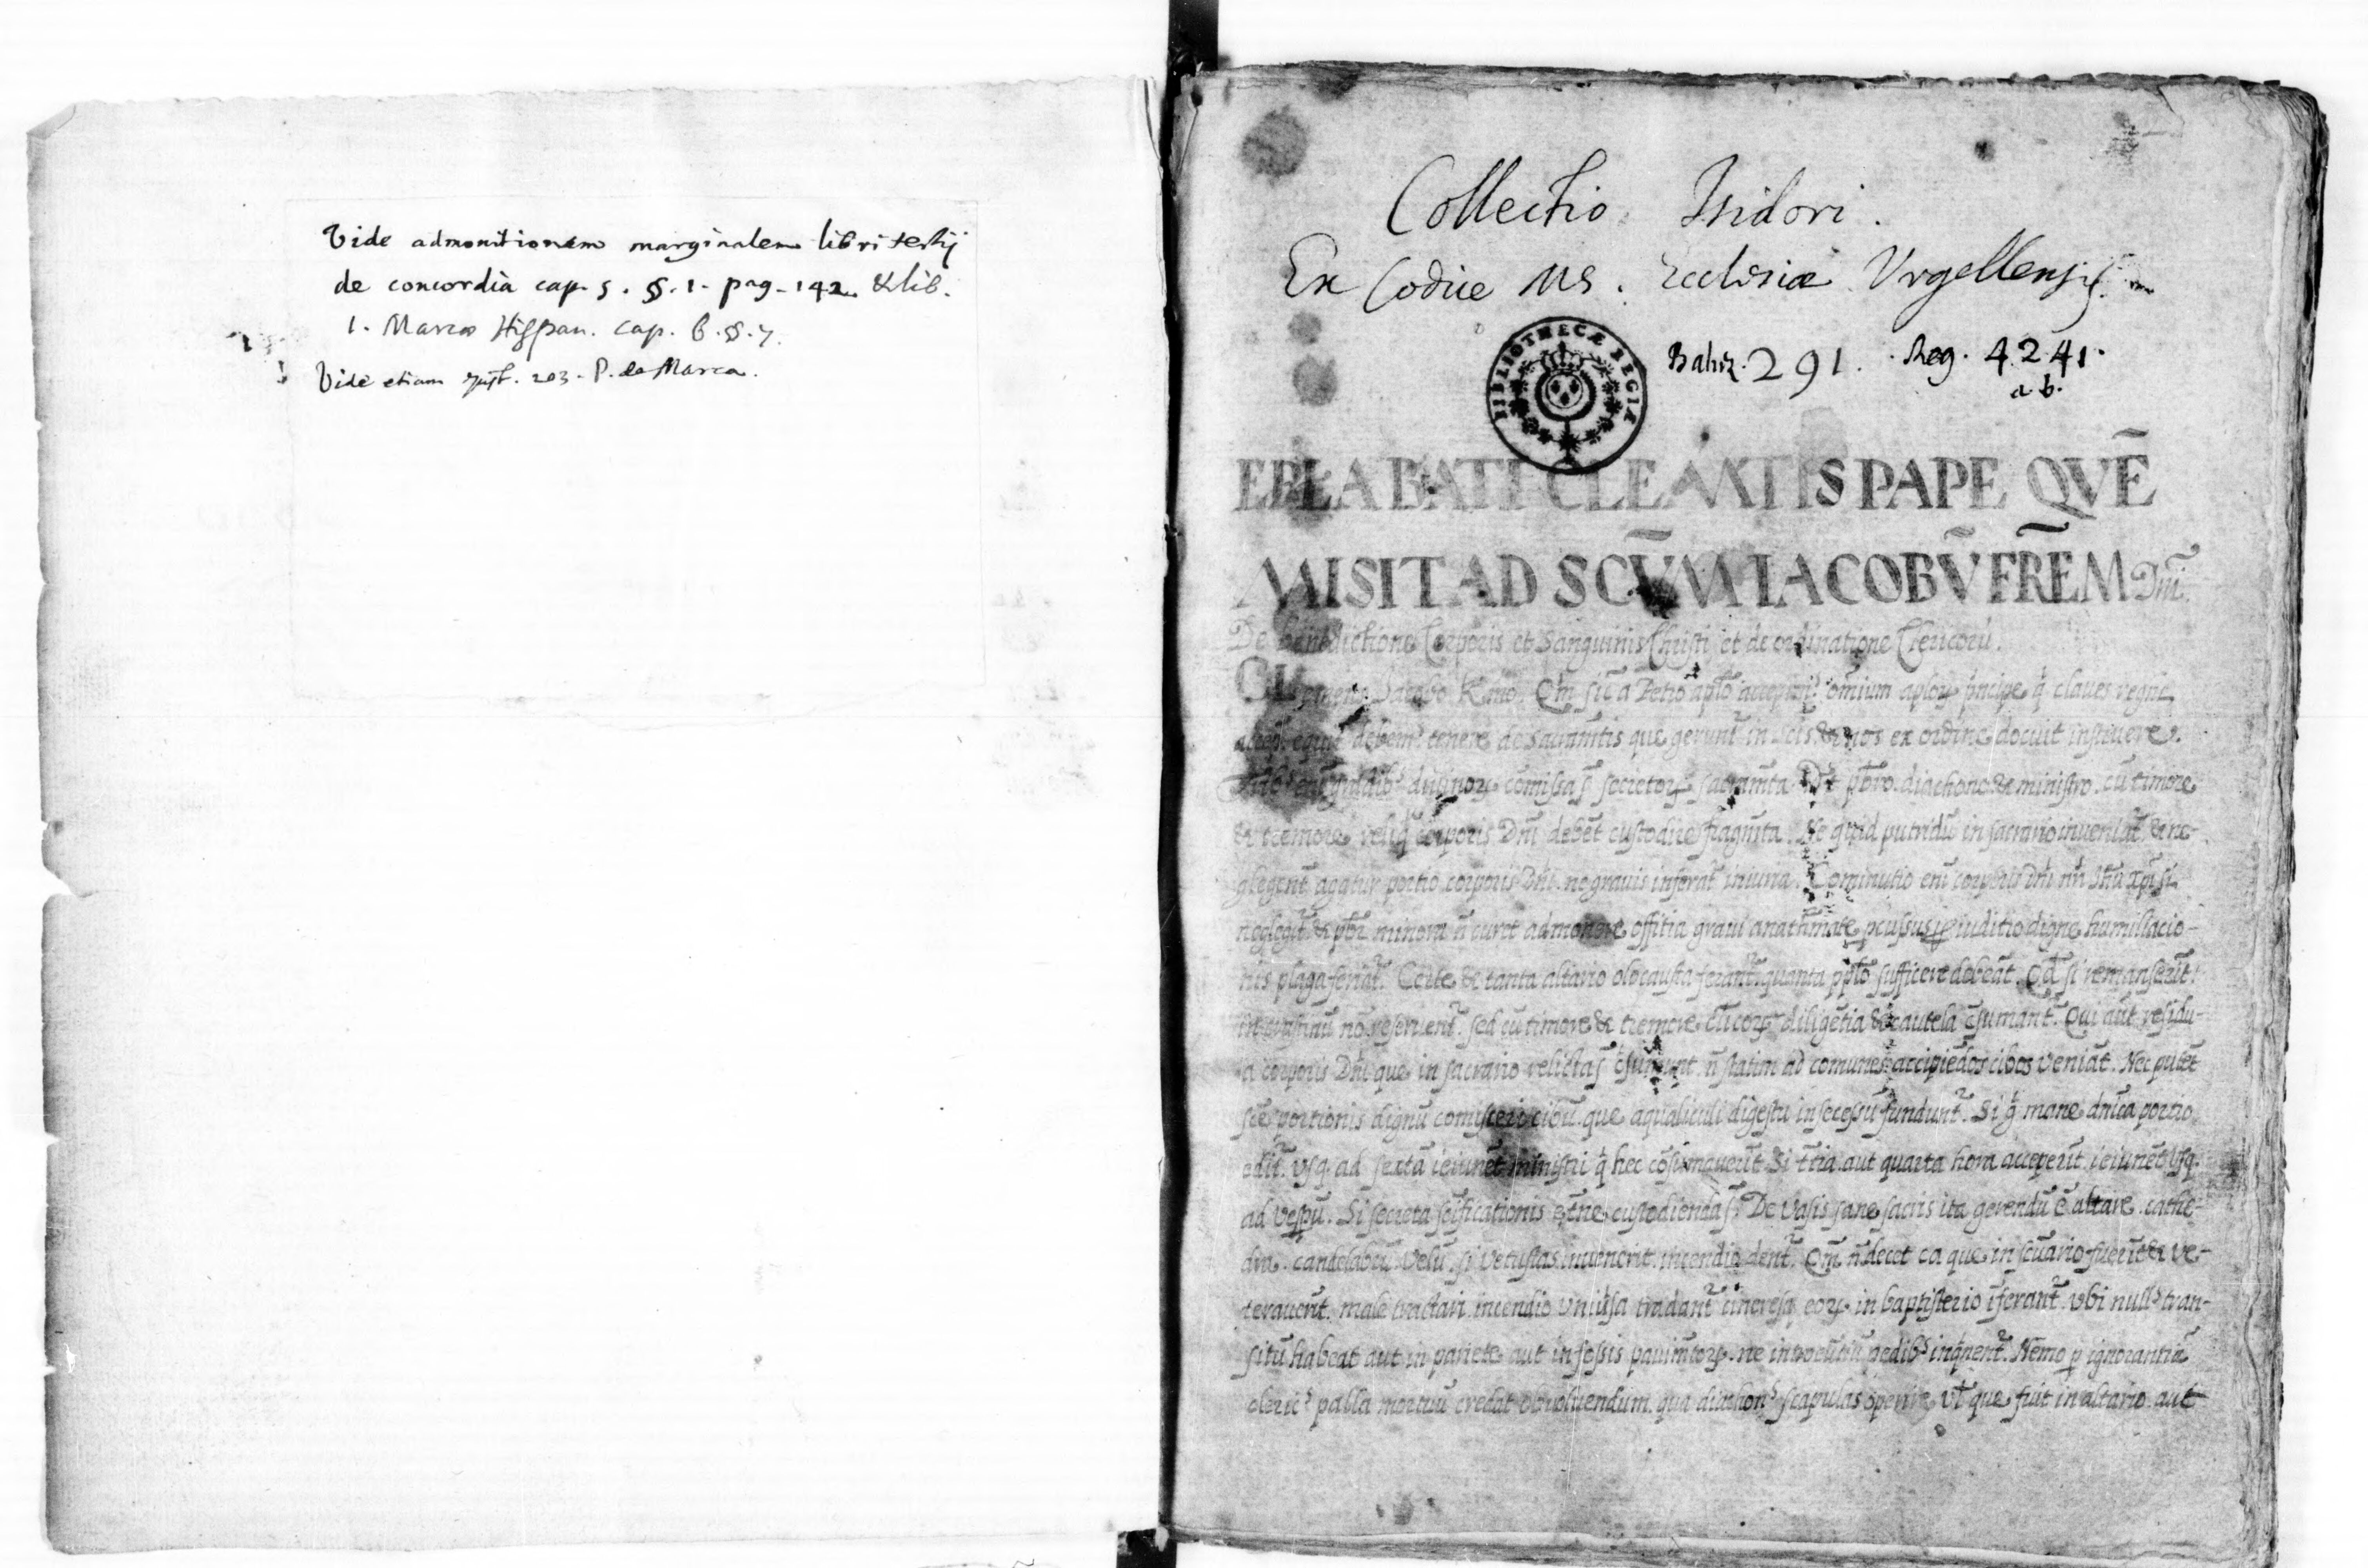 Vide admonitionem marginalem libri tertij
de concordia cap. 5. §. 1. pag. 142. & lib.
1. Marcæ Hispan. cap. 6. §. 7.
Vide etiam 203. P. de Marca.
Collectio Isidori.
Ex Codice MS. Ecclesiæ Vrgellensis.
BIBLIOTHECÆ REGIÆ
Baluz. 291. Reg. 4241.
a b.
EPLA BATI CLEMTIS PAPE QVĒ
MISIT AD SCŪM IACOBV̄ FRĒM Dn̄i.
De benedictione Corporis et Sanguinis Christi et de ordinatione Clericorū.
Cle Jacobo Kmo. Qm̄ sic̄ a Petro aplō omīum claues regni
debem' tenere de sacram̄tis que gerunt̄ in & nos ex ordine docuit instruere.
comissa s̄ secretorꝝ sacram̄ta pb̄ro. diachono & ministro. cū timore
& tremore corporis Dn̄i debēt custodire fragm̄ta. Ne quid putridū in sacrario inueniat̄. & ne-
glegent̄ agatur portio corporis Dn̄i. ne grauis inferat̄ iniuria. Cominutio eni corporis dn̄i nr̄i Ihū Xpī si
neglegit̄. & pb̄r minora n̄ curet admonere offitia graui anathmate pcussus & iuditio digne humiliacio-
nis plaga feriat̄. Certe & tanta altario olocausta ferant̄. quanta pplō sufficere debeāt. Qd̄ si remanserit̄
in crastinū nō reseruent̄. sed cū timore & tremore clicorꝝ diligētia & cautela c̄sumant̄. Qui aūt residu-
a corporis Dn̄i que in sacrario relicta s̄ c̄sumunt. n̄ statim ad comunes accipiēdos cibos veniāt. Nec putēt
sc̄e portionis dignū comisceri cibū. que aqualiculi digestū in secessū fundunt̄. Si g̊ mane dn̄ica portio
edit̄. vsq. ad sextā ieiunēt ministri q̇ hec cōsumpserūt. Si t̄tia. aut quarta hora acceperīt. ieiunēt vsq.
ad vesp̄ū. Si secreta sc̄ificationis custodienda s̄. De vasis sane sacris ita gerendū ē altare. cathe-
dra. candelabrū. velū. si vetustas inuenerit. incendio dent̄. Qm̄ n̄ decet ea que in scūario fuerīt & ve-
terauerīt. male tractari incendio vniūsa tradant̄ cineresq. eorꝝ in baptisterio īferant̄. vbi null' tran-
sitū habeat aut in pariete aut in fossis pauim̄torꝝ. ne pedib' inqnent̄. Nemo p ignorantiā
cleric' palla mortuū credat obuoluendum. qua diachon' scapulas operire. vl̄ que fuit in altario. aut